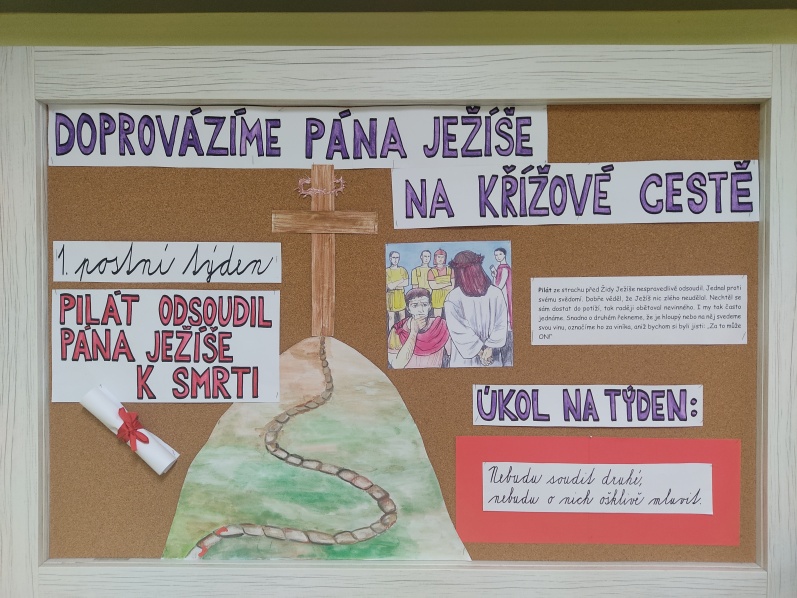 DOPROVÁZÍME PÁNA JEŽÍŠE
NA KŘÍŽOVÉ CESTĚ
1. postní týden
PILÁT ODSOUDIL
PÁNA JEŽÍŠE
K SMRTI
Pilát ze strachu před Židy Ježíše nespravedlivě odsoudil. Jednal proti
svému svědomí. Dobře věděl, že Ježíš nic zlého neudělal. Nechtěl se
sám dostat do potíží, tak raději obětoval nevinného. I my tak často
jednáme. Snadno o druhém řekneme, že je hloupý nebo na něj svedeme
svou vinu, označíme ho za viníka, aniž bychom si byli jisti: „Za to může
ON!"
ÚKOL NA TÝDEN:
Nebudu soudit druhé,
nebudu o nich ošklivě mluvit.